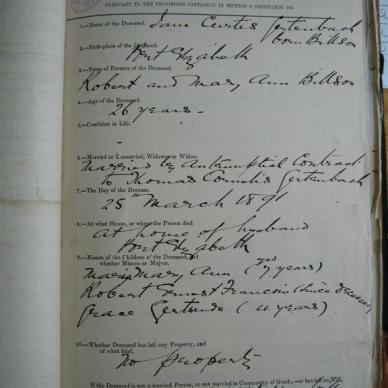 PURSUANT TO THE PROVISIONS CONTAINED IN SECTION 9, ORDINANCE 104.
1.—Name of the Deceased. Jane Curtis Gertenbach
born Billson
2.—Birth-place of the Deceased.
Port Elizabeth
3.—Name of Parents of the Deceased.
Robert and Mary Ann Billson
4.—Age of the Deceased.
26 years -
5.—Condition in Life.
-
6.—Married or Unmarried, Widower or Widow.
Married by Antenuptial Contract
to Thomas Cornelis Gertenbach
7.—The Day of the Decease.
25th March 1891
8.—At what House, or where the Person died.
At home of husband
Port Elizabeth
9.—Names of the Children of the Deceased, and
whether Minors or Majors.
Maria Mary Ann (7 years)
Robert Ernest Francois (since deceased)
Grace Gertrude (4 years)
10.—Whether Deceased has left any Property, and
of what kind.
No property
If the Deceased is not a married Person, or not married in Community of Goods,—or has left no Will,